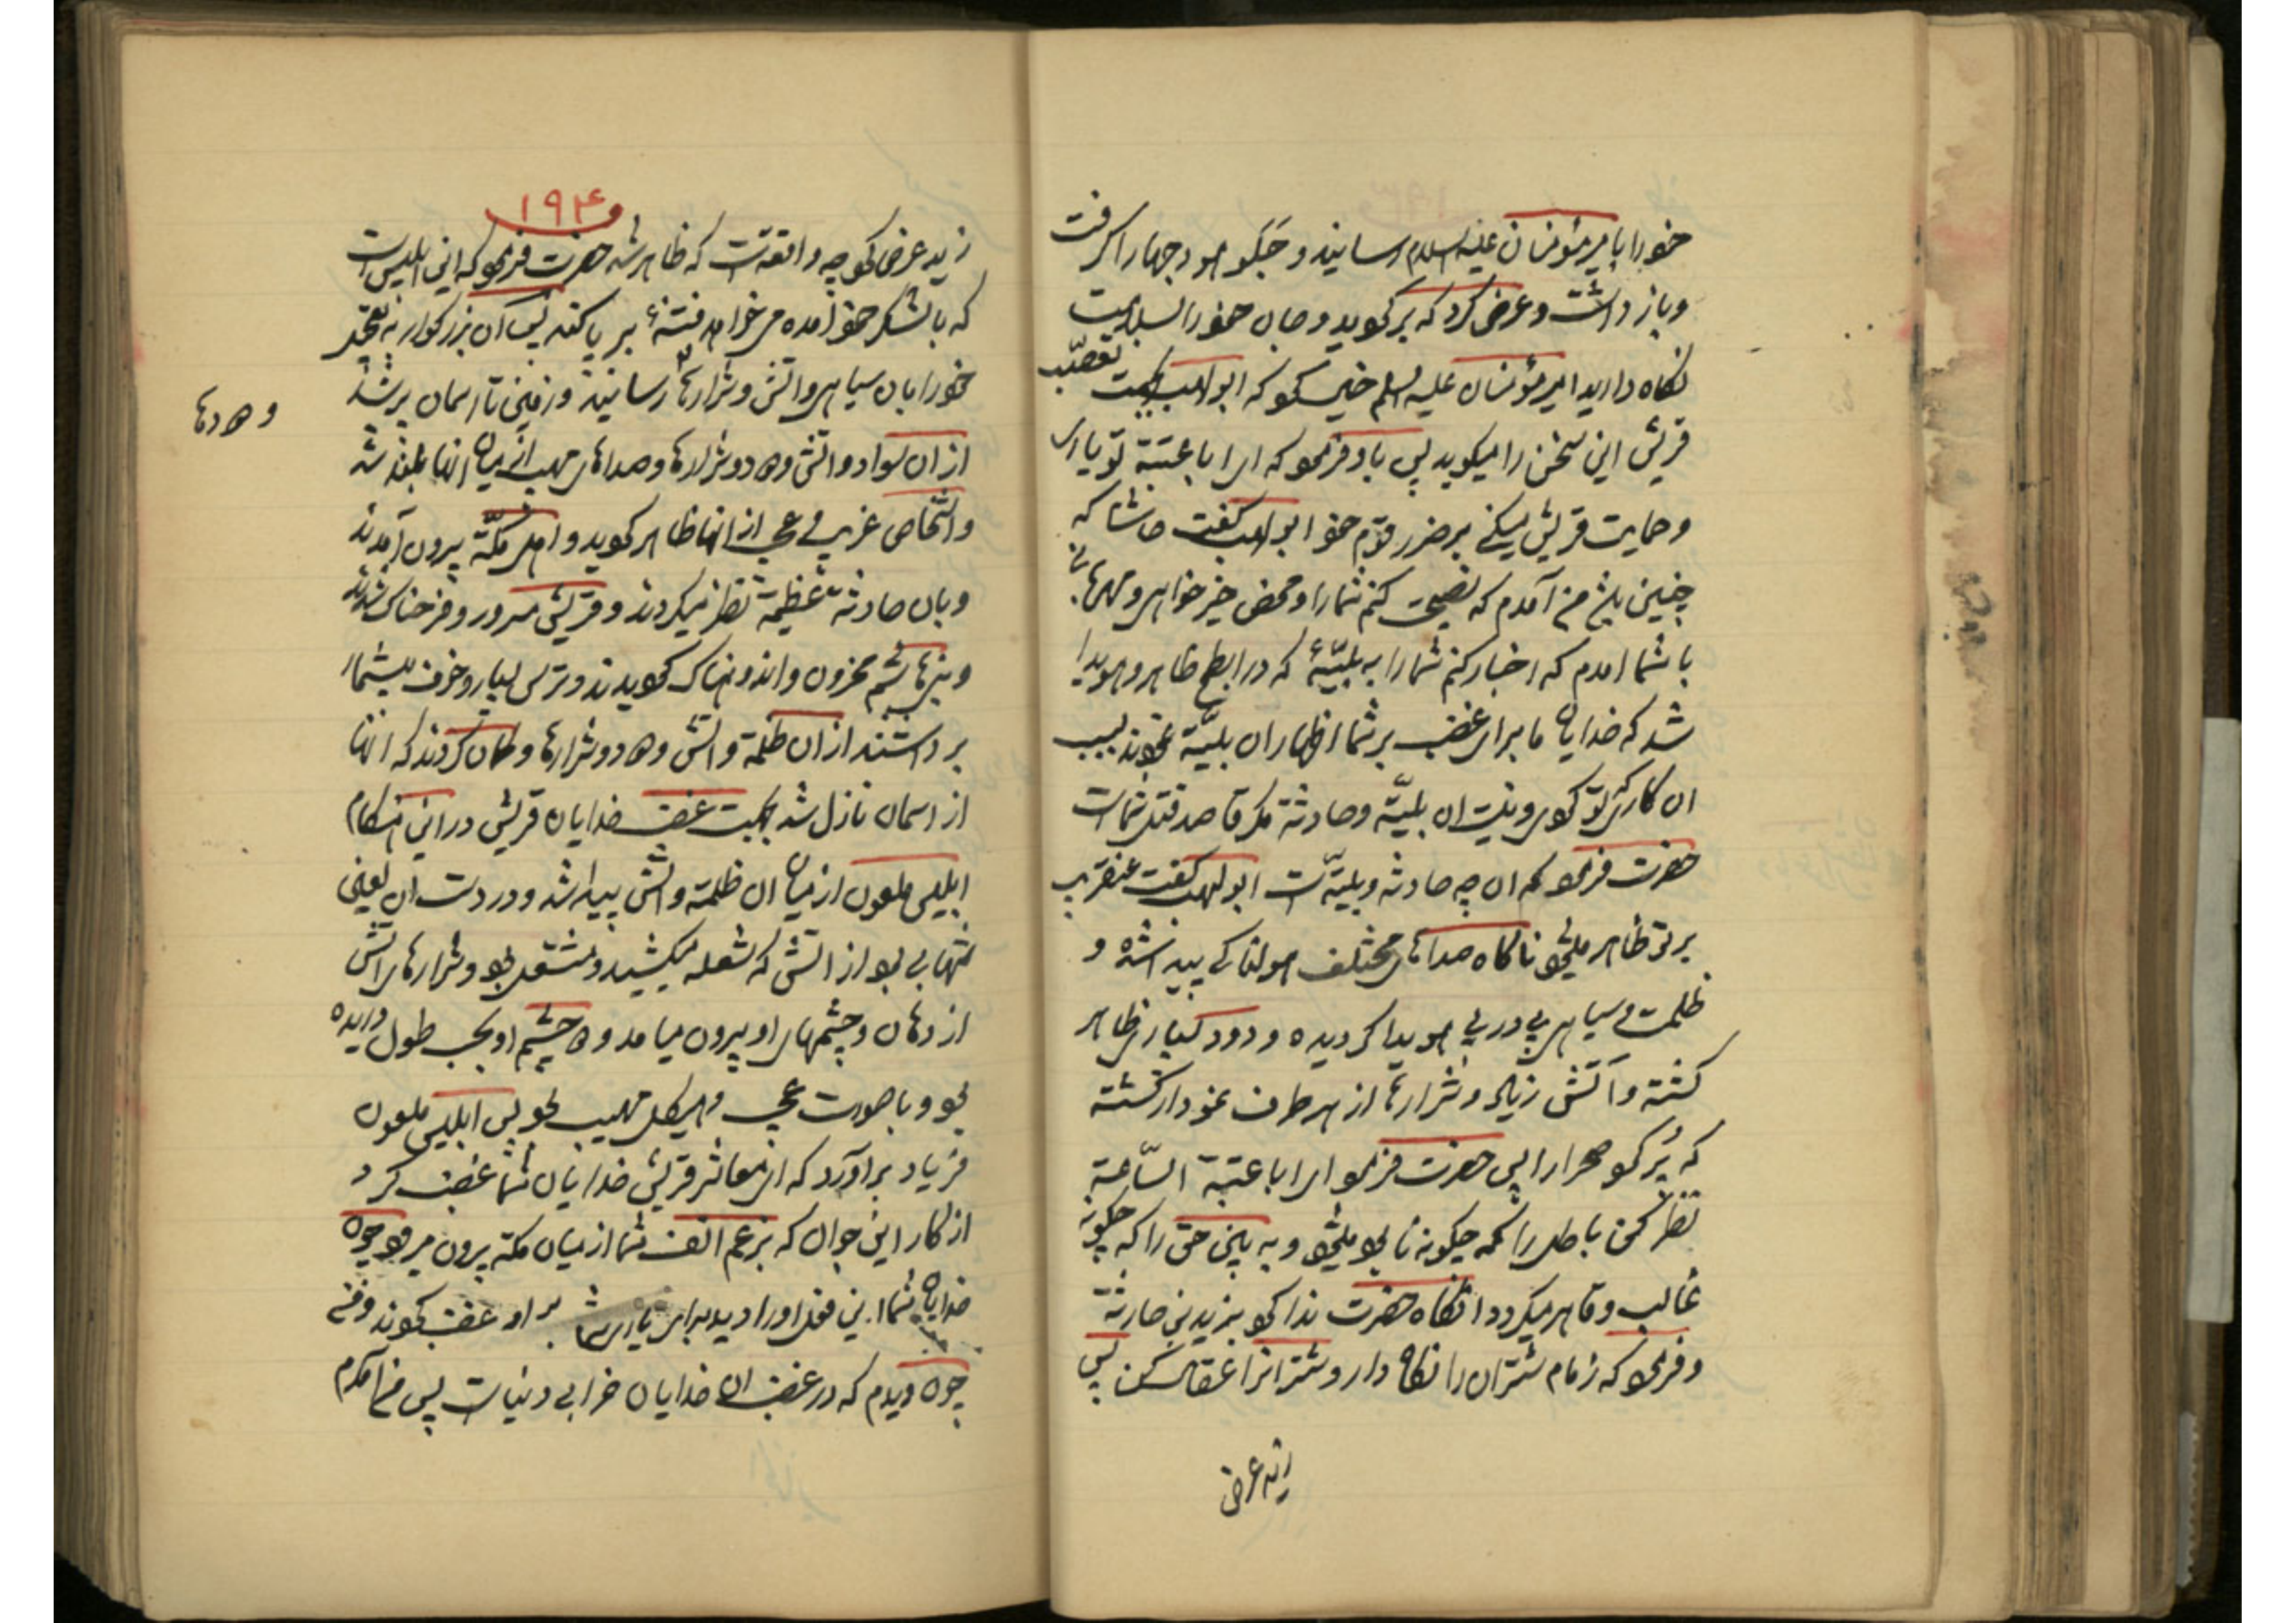 خود را بامیرمؤمنان علیه السلام رسانید و جلو هودجها را گرفت
و باز داشت و عرض کرد که برگردید و جان خود را بسلامت
نگاه دارید امیرمؤمنان علیه السلم خیال کرد که ابولهب بجهت تعصّب
قریش این سخن را میگوید پس باو فرمود که ای ابا عتبة تو یاری
و حمایت قریش میکنی بر ضرر قوم خود ابولهب گفت حاشا که
چنین باشد من آمدم که نصیحت کنم شما را و محض خیرخواهی و مهربانی
با شما امدم که اخبار کنم شما را به بلیّهٔ که در ابطح ظاهر و هویدا
شد که خدایان ما برای غضب بر شما اظهار ان بلیّة نمودند بسبب
ان کار که تو کردی و نیست ان بلیّة و حادثة مگر قاصد قتل شماست
حضرت فرمود که ان چه حادثه و بلیّه است ابولهب گفت عنقریب
بر تو ظاهر میشود ناگاه صداهای مختلف هولناکی پیدا شده و
ظلمت و سیاهی پی در پی هویدا گردیده و دود بسیاری ظاهر
گشته و آتش زیاد و شرارها از هر طرف نمودار گشته
که پُر کرد صحرا را پس حضرت فرمود ای ابا عتبة السّاعة
نظر کن باطل را که چگونه نابود میشود و به بین حق را که چگونه
غالب و قاهر میگردد انگاه حضرت ندا کرد بزید بن حارثة
و فرمود که زمام شتران را نگاه دار و شتران را عقال کن پس
زید عرض
۱۹۴
زید عرض کرد چه واقعه است که ظاهر شد حضرت فرمود که این ابلیس است
که با لشکر خود آمده می خواهد فتنهٔ بر پا کند پس آن بزرگوار نه تعجّد
خود را بان سیاهی و اتش و شرارها رسانیدند و زمین تا اسمان پر شد
و دودها
از ان سواد و اتش و دود و شرارها و صداهای مهیب از میان انها بلند شد
و اشخاص غریب و عجیب از انها ظاهر گردید و اهل مکّة بیرون آمدند
و بان حادثه عظیمة نظر میکردند و قریش مسرور و فرحناک شدند
و بنی هاشم محزون و اندوهناک گردیدند و ترس بسیار و خوف بیشمار
برداشتند از ان ظلمة و اتش و دود و شرارها و گمان کردند که انها
از اسمان نازل شد بجهت غضب خدایان قریش در این هنگام
ابلیس ملعون از میان ان ظلمة و اتش پیدا شد و در دست ان لعین
شهابی بود از اتش که شعله میکشید و مشتعل بود و شرارهای اتش
از دهان و چشمهای او بیرون میامد و دو چشم او بجهت طول دریده
بود و با صورت عجیب و هیکل مهیب بود پس ابلیس ملعون
فریاد براورد که ای معاشر قریش خدایان شما غضب کرد
از کار این جوان که بزعم انف شما از میان مکة بیرون میرود چون
خدایان شما این فعل او را دیدند برای یاری شما بر او غضب نمودند و من
چون دیدم که در غضب ان خدایان خرابی دنیاست پس من آمدم